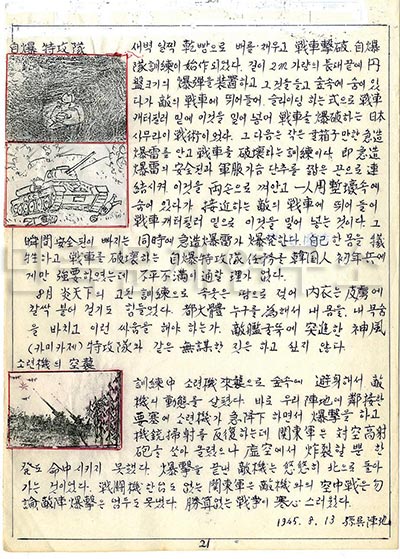 自爆 特攻隊
새벽 일찍 乾빵으로 배를 채우고 戰車擊破 自爆
隊訓練이 始作되었다. 길이 2m 가량의 長대 끝에 円
盤크기의 爆弾을 装置하고 그것을 들고 숲속에 숨어 있
다가 敵의 戰車에 뛰어들어, 슬라이딩 하는 式으로 戰車
캐터필러 밑에 이것을 밀어 넣어 戰車를 爆破하는 日本
사무라이 戰術이었다. 그 다음은 각은 箱子만한 急造
爆雷를 안고 戰車를 破壞하는 訓練이다. 即 急造
爆雷의 安全핀과 軍服가슴 단추를 짧은 끈으로 連
結시켜 이것을 両손으로 껴안고 一人用 塹壕속에
숨어 있다가 接近하는 敵의 戰車에 뛰어들어
戰車 캐터필러 밑으로 이것을 밀어 넣는 것이다. 그
瞬間 安全핀이 빠지는 同時에 急造爆雷가 爆発한다. 自己한몸을 犠
牲하고 戰車를 破壞하는 自爆特攻隊(任務)는 韓国人 初年兵에
게만 強要하였는데 不平不満이 通할 理가 없다.
8月 炎天下의 고된 訓練으로 속옷은 땀으로 젖어 內衣는 皮膚에
찰싹 붙어 걷기도 힘들었다. 都大體 누구를 為해서 내 몸을, 내 목숨
을 바치고 이런 싸움을 해야 하는가. 敵艦굴뚝에 突進한 神風
(카미카제) 特攻隊와 같은 無謀한 짓은 하고 싶지 않다.
소련機의 空襲
訓練中 소련機 來襲으로 숲속에 避身해서 敵
機의 動態를 살폈다. 바로 우리 陣地에 鄰接한
要塞에 소련機가 急降下 하면서 爆撃을 하고
機銃掃射를 反復하는데 関東軍은 対空高射
砲를 쏘아 올렸으나 虛空에서 炸裂할 뿐 한
発도 命中시키지 못했다. 爆撃을 끝낸 敵機는 悠悠히 北으로 돌아
가는 것이었다. 戰闘機 한台도 없는 関東軍은 敵機와의 空中戰은 勿
論 敵陣爆撃은 엄두도 못냈다. 勝算없는 戰爭이 寒心스러웠다.
1945. 8. 13 陣地
21